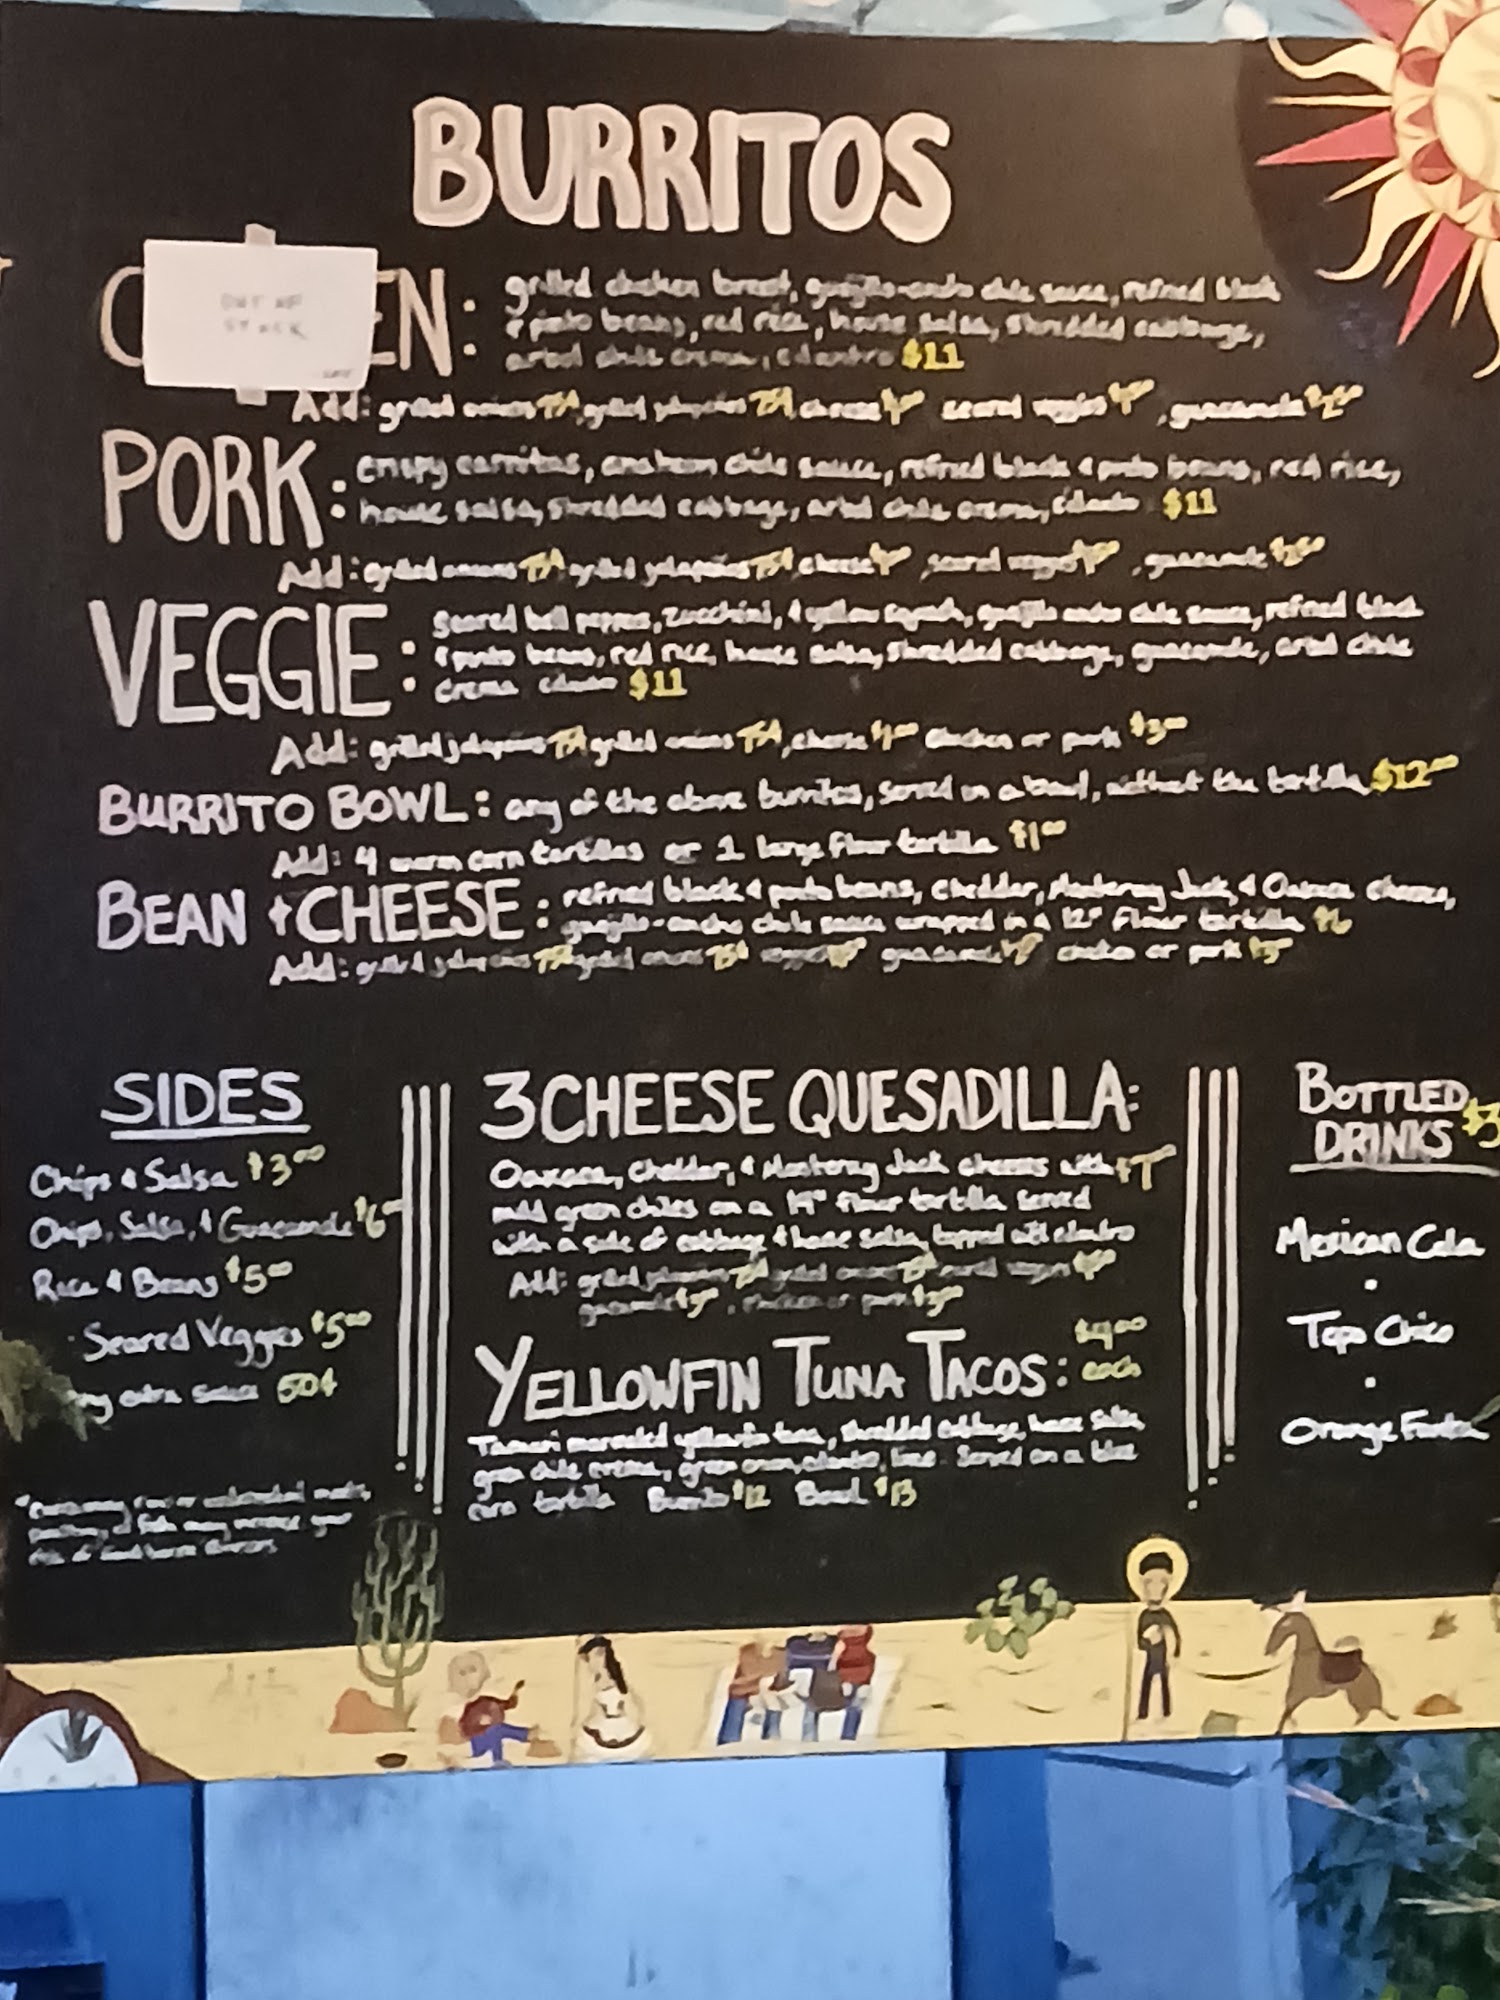 BURRITOS
C EN: grilled chicken breast, guajillo-ancho chile sauce, refried black
& pinto beans, red rice, house salsa, shredded cabbage,
arbol chile crema, cilantro $11
OUT OF
STOCK
Add: grilled onions 75¢, grilled jalapeños 75¢, cheese seared veggies , guacamole
PORK: crispy carnitas, anaheim chile sauce, refried black & pinto beans, red rice,
house salsa, shredded cabbage, arbol chile crema, cilantro $11
Add: grilled onions 75¢ grilled jalapeños 75¢, cheese , seared veggies , guacamole $2.50
VEGGIE: Seared bell peppers, zucchini, & yellow squash, guajillo ancho chile sauce, refried black
& pinto beans, red rice, house salsa, shredded cabbage, guacamole, arbol chile
crema cilantro $11
Add: grilled jalapeños 75¢ grilled onions 75¢, cheese $1.00 chicken or pork $3.00
BURRITO BOWL: any of the above burritos, served in a bowl, without the tortilla $12.00
Add: 4 warm corn tortillas or 1 large flour tortilla $1.00
BEAN + CHEESE: refried black & pinto beans, Cheddar, Monterey Jack, & Oaxaca cheeses,
guajillo-ancho chile sauce wrapped in a 12" flour tortilla $6
Add: grilled jalapeños 75¢ grilled onions 75¢ veggies guacamole chicken or pork $3
SIDES
Chips & Salsa $3.00
Chips, Salsa, & Guacamole $6
Rice & Beans $5.00
Seared Veggies $5.00
ny extra sauce 50¢
*Consuming raw or undercooked meats,
poultry, or fish may increase your
risk of foodborne illnesses
3 CHEESE QUESADILLA:
Oaxaca, Cheddar, & Monterey Jack cheeses with $7
mild green chiles on a 14" flour tortilla served
with a side of cabbage & house salsa, topped with cilantro
Add: grilled jalapeños 75¢ grilled onions 75¢ seared veggies
guacamole , chicken or pork $3.00
YELLOWFIN TUNA TACOS: $4.00
each
Tamari marinated yellowfin tuna, shredded cabbage, house salsa,
green chile crema, green onion, cilantro, lime. Served on a blue
corn tortilla Burrito $12 Bowl $13
BOTTLED
DRINKS $3
Mexican Cola
•
Topo Chico
•
Orange Fanta